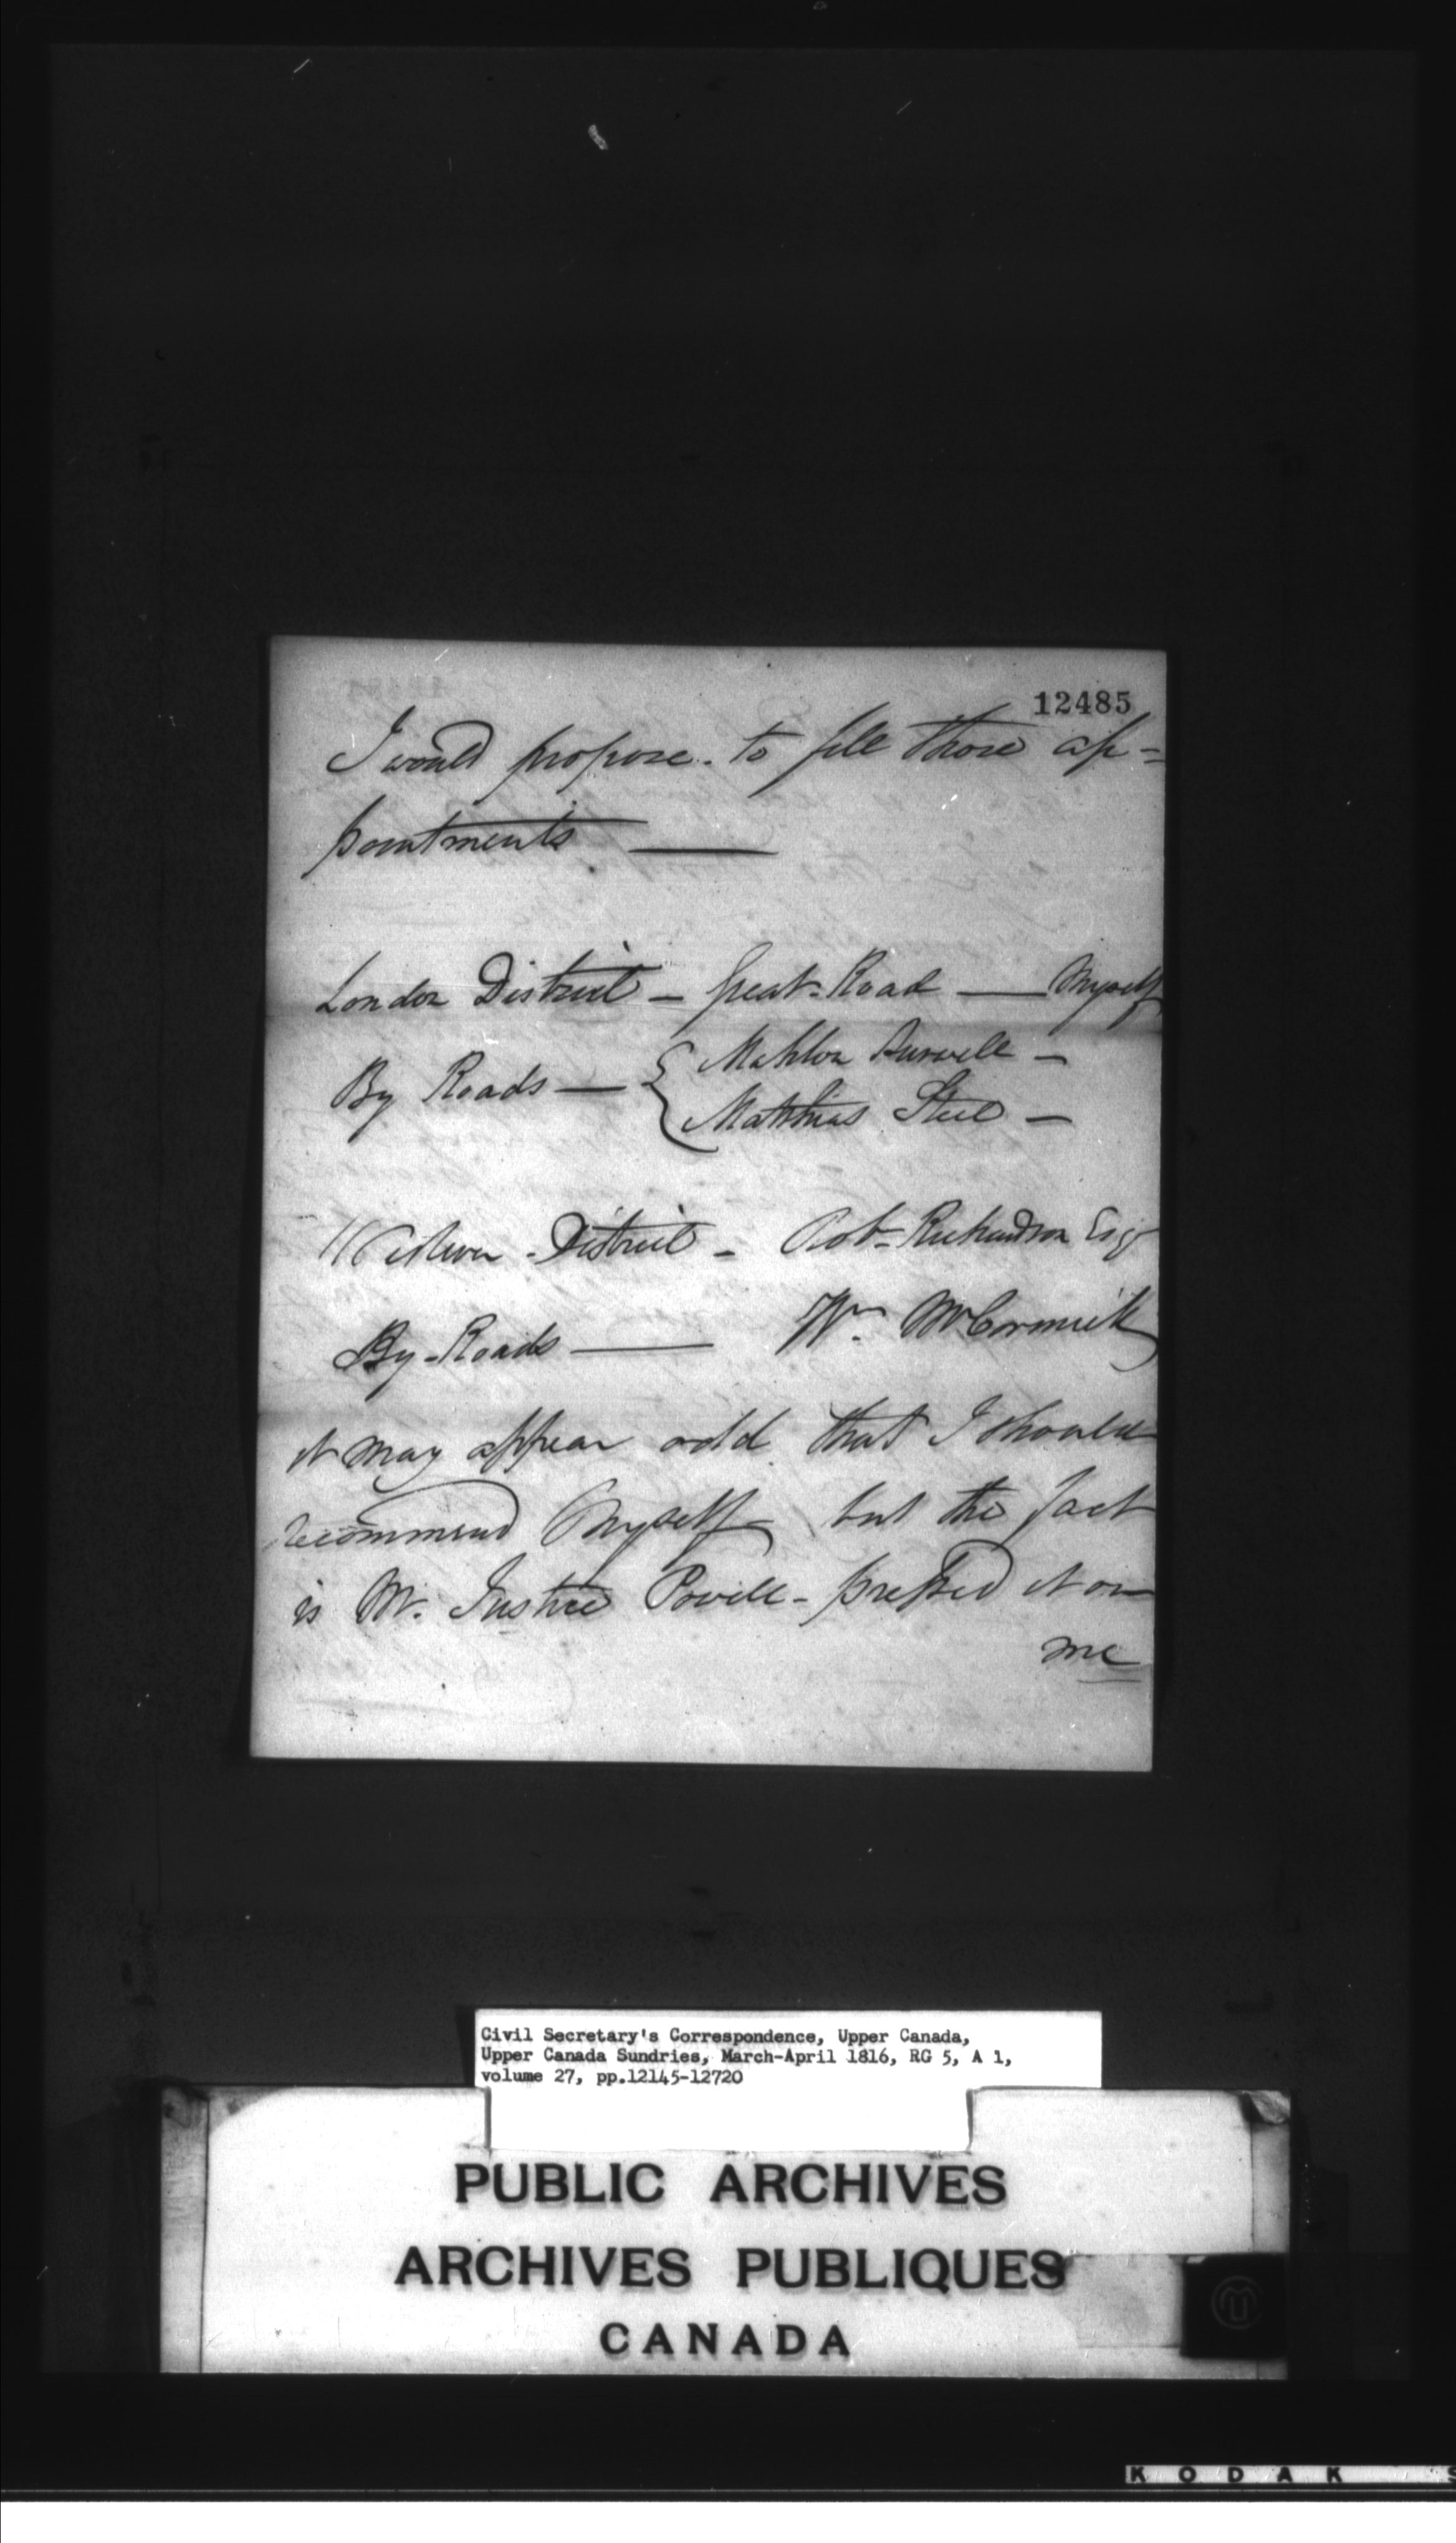 12485
I would propose. to fill those ap=
pointments ——
London District — Great-Road —— Myself
By Roads — { Mahlon Burwell —
Matthias Steel —
Western District — Robt Richardson Esqr
By-Roads —— Wm McCormick
it may appear odd that I should
recommend Myself, but the fact
is Mr. Justice Powell - pressed it on
me
Civil Secretary's Correspondence, Upper Canada,
Upper Canada Sundries, March-April 1816, RG 5, A 1,
volume 27, pp.12145-12720
PUBLIC ARCHIVES
ARCHIVES PUBLIQUES
CANADA
KODAK S